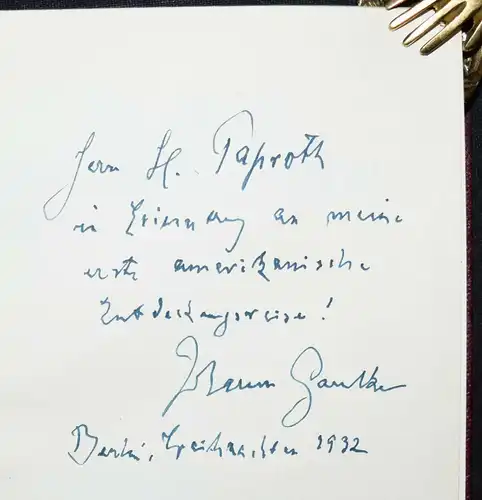 Herrn H. Taproth
in Erinnerung an meine
erste amerikanische
Entdeckungsreise!
Johannes Gaulke
Berlin, Weihnachten 1932